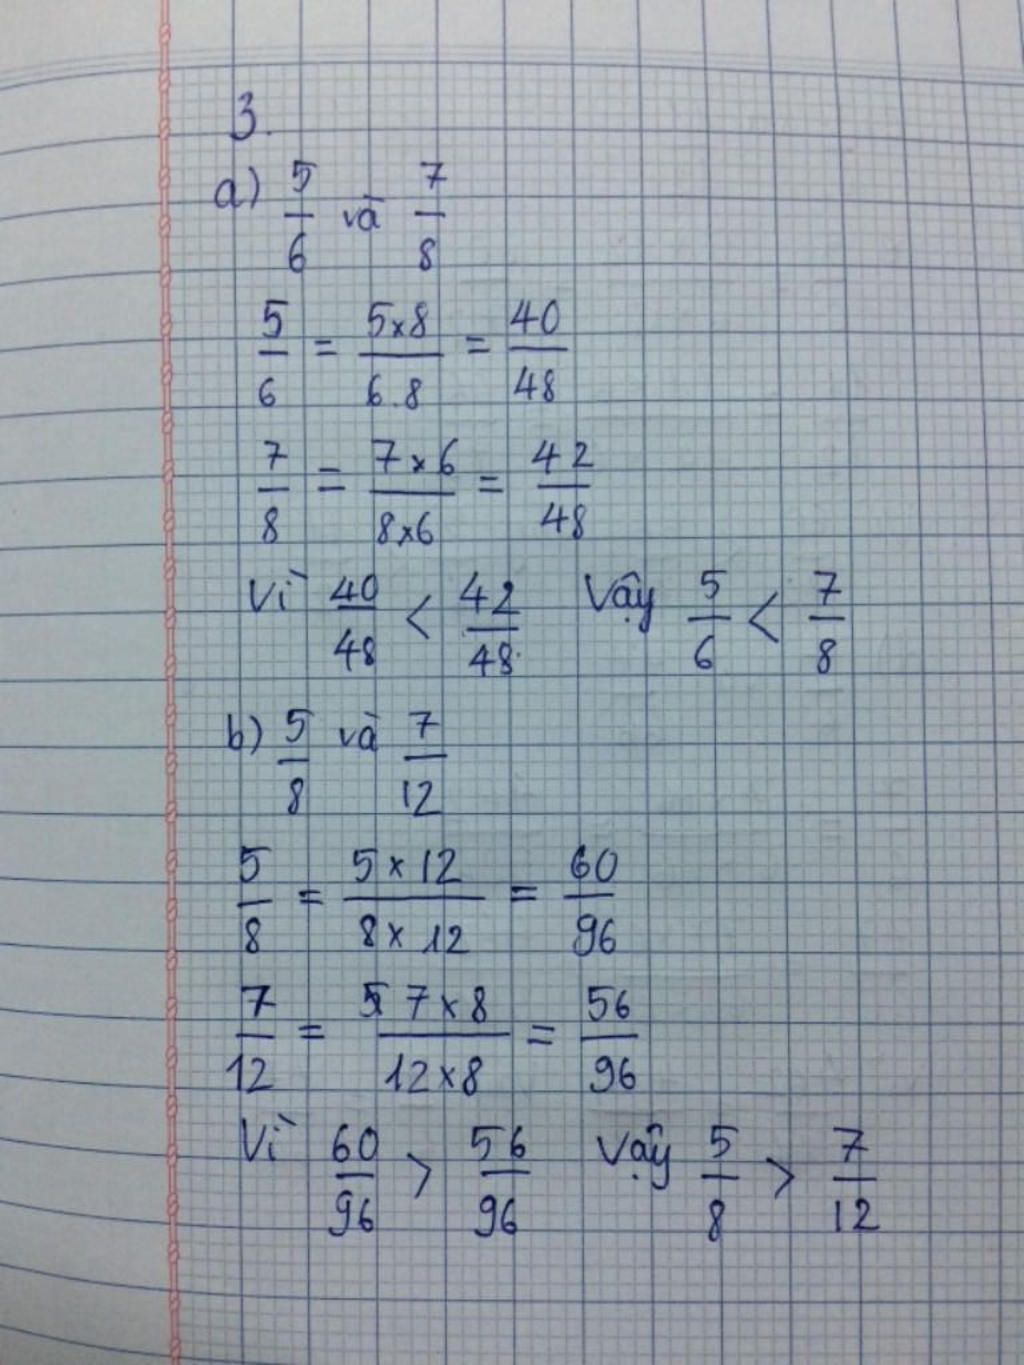 3.
a) 5/6 và 7/8
5/6 = 5x8/6.8 = 40/48
7/8 = 7x6/8x6 = 42/48
Vì 40/48 < 42/48 Vậy 5/6 < 7/8
b) 5/8 và 7/12
5/8 = 5x12/8x12 = 60/96
7/12 = 7x8/12x8 = 56/96
Vì 60/96 > 56/96 Vậy 5/8 > 7/12